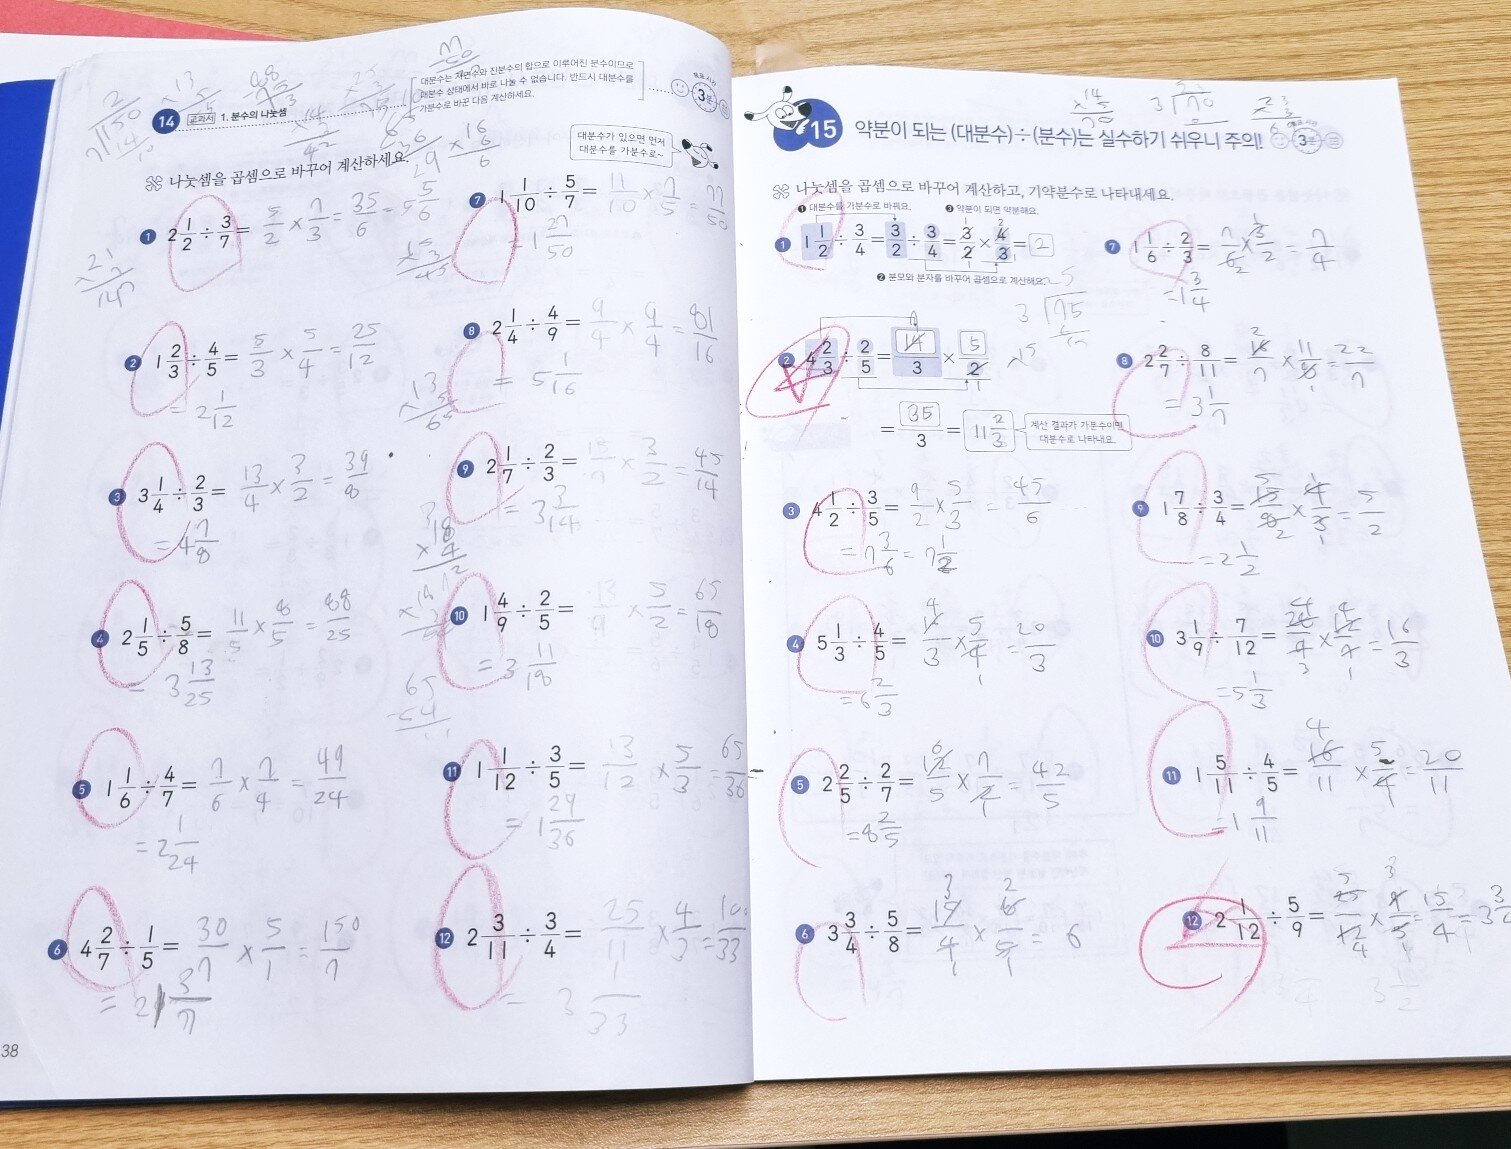 14 교과서 1. 분수의 나눗셈
대분수는 자연수와 진분수의 합으로 이루어진 분수이므로
대분수 상태에서 바로 나눌 수 없습니다. 반드시 대분수를
가분수로 바꾼 다음 계산하세요.
3분
대분수가 있으면 먼저
대분수를 가분수로~
나눗셈을 곱셈으로 바꾸어 계산하세요.
1 2 1/2 ÷ 3/7 = 5/2 × 7/3 = 35/6 = 5 5/6
2 1 2/3 ÷ 4/5 = 5/3 × 5/4 = 25/12
= 2 1/12
3 3 1/4 ÷ 2/3 = 13/4 × 3/2 = 39/8
= 4 7/8
4 2 1/5 ÷ 5/8 = 11/5 × 8/5 = 88/25
= 3 13/25
5 1 1/6 ÷ 4/7 = 7/6 × 7/4 = 49/24
= 2 1/24
6 4 2/7 ÷ 1/5 = 30/7 × 5/1 = 150/7
= 21 3/7
7 1 1/10 ÷ 5/7 = 11/10 × 7/5 = 77/50
= 1 27/50
8 2 1/4 ÷ 4/9 = 9/4 × 9/4 = 81/16
= 5 1/16
9 2 1/7 ÷ 2/3 = 15/7 × 3/2 = 45/14
= 3 3/14
10 1 4/9 ÷ 2/5 = 13/9 × 5/2 = 65/18
= 3 11/18
11 1 1/12 ÷ 3/5 = 13/12 × 5/3 = 65/36
= 1 29/36
12 2 3/11 ÷ 3/4 = 25/11 × 4/3 = 100/33
= 3 1/33
38
15 약분이 되는 (대분수)÷(분수)는 실수하기 쉬우니 주의!
3분
나눗셈을 곱셈으로 바꾸어 계산하고, 기약분수로 나타내세요.
❶ 대분수를 가분수로 바꿔요. ❸ 약분이 되면 약분해요.
1 1 1/2 ÷ 3/4 = 3/2 ÷ 3/4 = 3/2 × 4/3 = 2
❷ 분모와 분자를 바꾸어 곱셈으로 계산해요.
2 4 2/3 ÷ 2/5 = 14/3 × 5/2
= 35/3 = 11 2/3
계산 결과가 가분수이면
대분수로 나타내요.
3 4 1/2 ÷ 3/5 = 9/2 × 5/3 = 45/6
= 7 3/6 = 7 1/2
4 5 1/3 ÷ 4/5 = 16/3 × 5/4 = 20/3
= 6 2/3
5 2 2/5 ÷ 2/7 = 12/5 × 7/2 = 42/5
= 8 2/5
6 3 3/4 ÷ 5/8 = 15/4 × 8/5 = 6
7 1 1/6 ÷ 2/3 = 7/6 × 3/2 = 7/4
= 1 3/4
8 2 2/7 ÷ 8/11 = 16/7 × 11/8 = 22/7
= 3 1/7
9 1 7/8 ÷ 3/4 = 15/8 × 4/3 = 5/2
= 2 1/2
10 3 1/9 ÷ 7/12 = 28/9 × 12/7 = 16/3
= 5 1/3
11 1 5/11 ÷ 4/5 = 16/11 × 5/4 = 20/11
= 1 9/11
12 2 1/12 ÷ 5/9 = 25/12 × 9/5 = 15/4 = 3 3/4